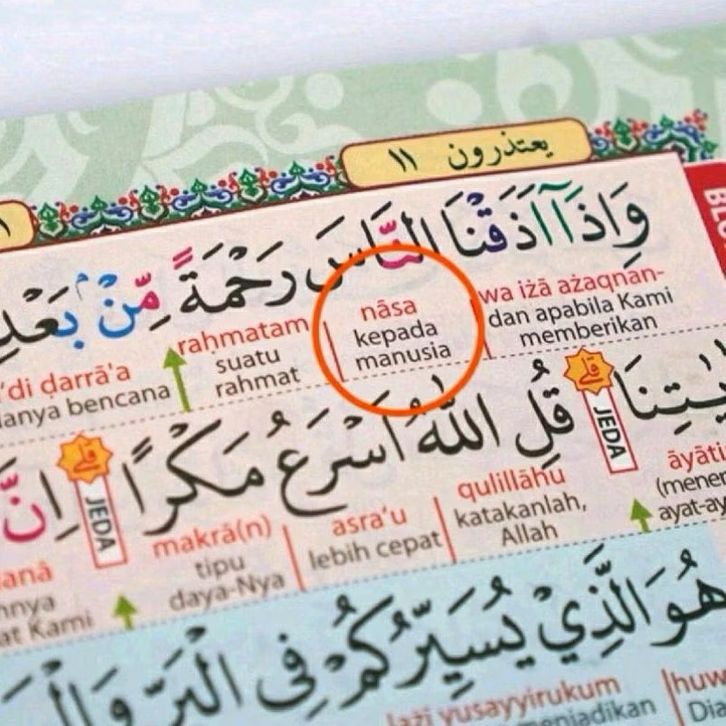 يعتذرون ١١
وَاِذَآ اَذَقْنَا النَّاسَ رَحْمَةً مِّنْۢ بَعْدِ
wa iżā ażaqnan- nāsa raḥmatam 'di ḍarrā'a
dan apabila Kami memberikan
kepada manusia
suatu rahmat
anya bencana
قُلِ اللّٰهُ اَسْرَعُ مَكْرًا اِنَّ
قلى JEDA قلى JEDA
āyāti qulillāhu asra'u makrā(n)
ayat-ay
katakanlah, Allah
lebih cepat
tipu daya-Nya
at Kami
هُوَ الَّذِيْ يُسَيِّرُكُمْ فِى الْبَرِّ
huw lażī yusayyirukum